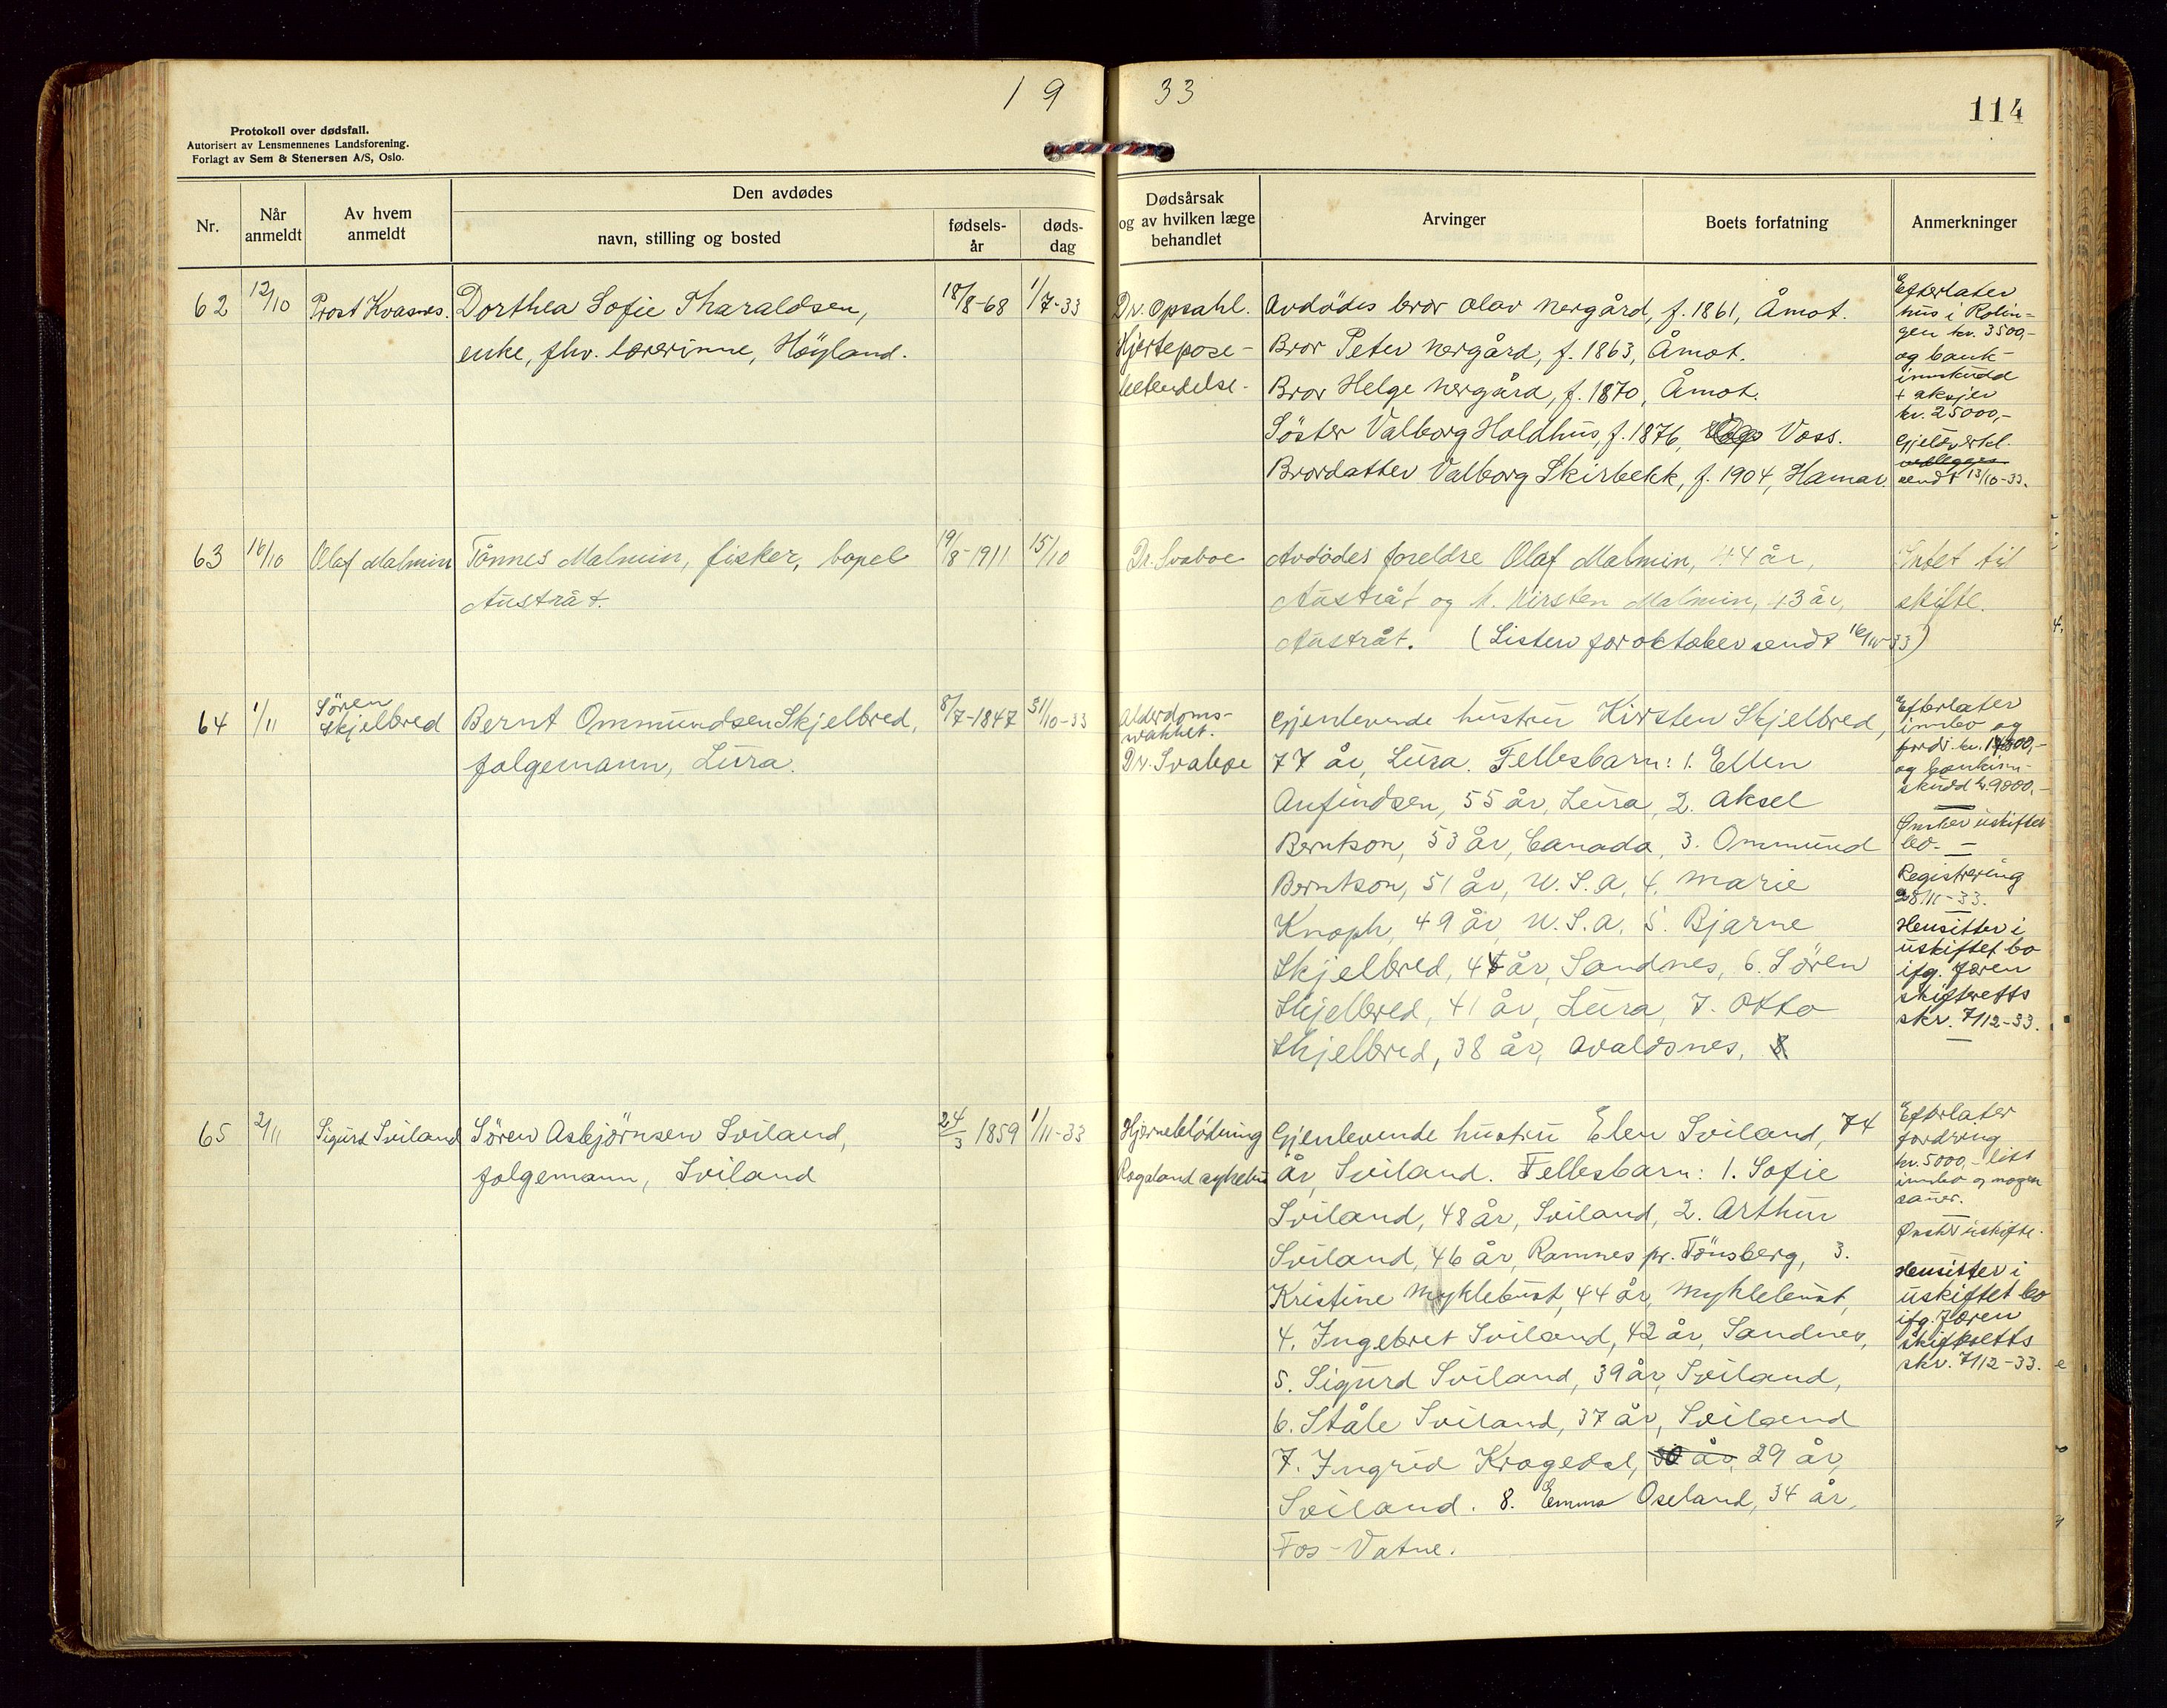 19 33
114
Protokoll over dødsfall.
Autorisert av Lensmennenes Landsforening.
Forlagt av Sem & Stenersen A/S, Oslo.
Nr.
Når anmeldt
Av hvem anmeldt
Den avdødes
navn, stilling og bosted
fødsels-år
døds-dag
Dødsårsak og av hvilken læge behandlet
Arvinger
Boets forfatning
Anmerkninger
62 12/10 Prost Kvasnes. Dorthea Sofie Tharaldsen, 18/8-68 1/7-33
enke, fhv. lærerinne, Höyland.
Dr. Opsahl.
Hjertepose-
betendelse.
Avdödes bror Olav Nergård, f. 1861, Åmot.
Bror Peter Nergård, f. 1863, Åmot.
Bror Helge Nergård, f. 1870, Åmot.
Söster Valborg Holdhus, f. 1876, Voss.
Brordatter Valborg Skirbekk, f. 1904, Hamar.
Efterlater
hus i
gen kr. 3500,-
og bank-
innskudd
+ aksjer
kr. 25000,-
Gjeldserkl.
vedlegges
sendt 13/10-33.
63 16/10 Olaf Malmin Tönnes Malmin, fisker, bopel 19/8-1911 15/10
Austråt.
Dr. Svaboe
Avdödes foreldre Olaf Malmin, 44 år,
Austråt og h. Kirsten Malmin, 43 år,
Austråt. (Listen for oktober sendt 16/10-33)
Intet til
skifte.
64 1/11 Sören
Skjelbred Bernt Ommundsen Skjelbred, 8/7-1847 31/10-33
folgemann, Lura.
Alderdoms-
svakhet.
Dr. Svaboe
Gjenlevende hustru Kirsten Skjelbred,
77 år, Lura. Fellesbarn: 1. Ellen
Anfindsen, 55 år, Lura, 2. Aksel
Berntson, 53 år, Canada, 3. Ommund
Berntson, 51 år, U.S.A, 4. Marie
Knoph, 49 år U.S.A. 5. Bjarne
Skjelbred, 44 år, Sandnes, 6. Sören
Skjelbred, 41 år, Lura, 7. Otto
Skjelbred, 38 år, Avaldsnes, 8
Efterlater
innbo og
fordr. kr.
og bankinn-
skudd kr. 9000,-
Önsker uskiftet
bo. -
Registrering
28/11-33.
Hensitter i
uskiftet bo
ifg. Jæren
skifteretts
skr. 7/12-33.
65 2/11 Sigurd Sviland Sören Asbjörnsen Sviland, 24/3 1859 1/11-33
folgemann, Sviland
Hjerneblödning
Rogaland sykehus
Gjenlevende hustru Elen Sviland, 74
år, Sviland. Fellesbarn: 1. Sofie
Sviland, 48 år, Sviland, 2. Arthur
Sviland, 46 år, Ramnes pr. Tönsberg, 3.
Kristine Myklebust, 44 år, Myklebust,
4. Ingebret Sviland, 42 år, Sandnes,
5. Sigurd Sviland, 39 år, Sviland,
6. Ståle Sviland, 37 år, Sviland
7. Ingrid Kragedal, 30 år, 29 år,
Sviland. 8. Emma Oseland, 34 år,
Fos-Vatne.
Efterlater
fordring
kr. 5000,- litt
innbo og nogen
sauer.
Önsker uskifte.
Hensitter i
uskiftet bo
ifg. Jæren
skifteretts
skr. 7/12-33.